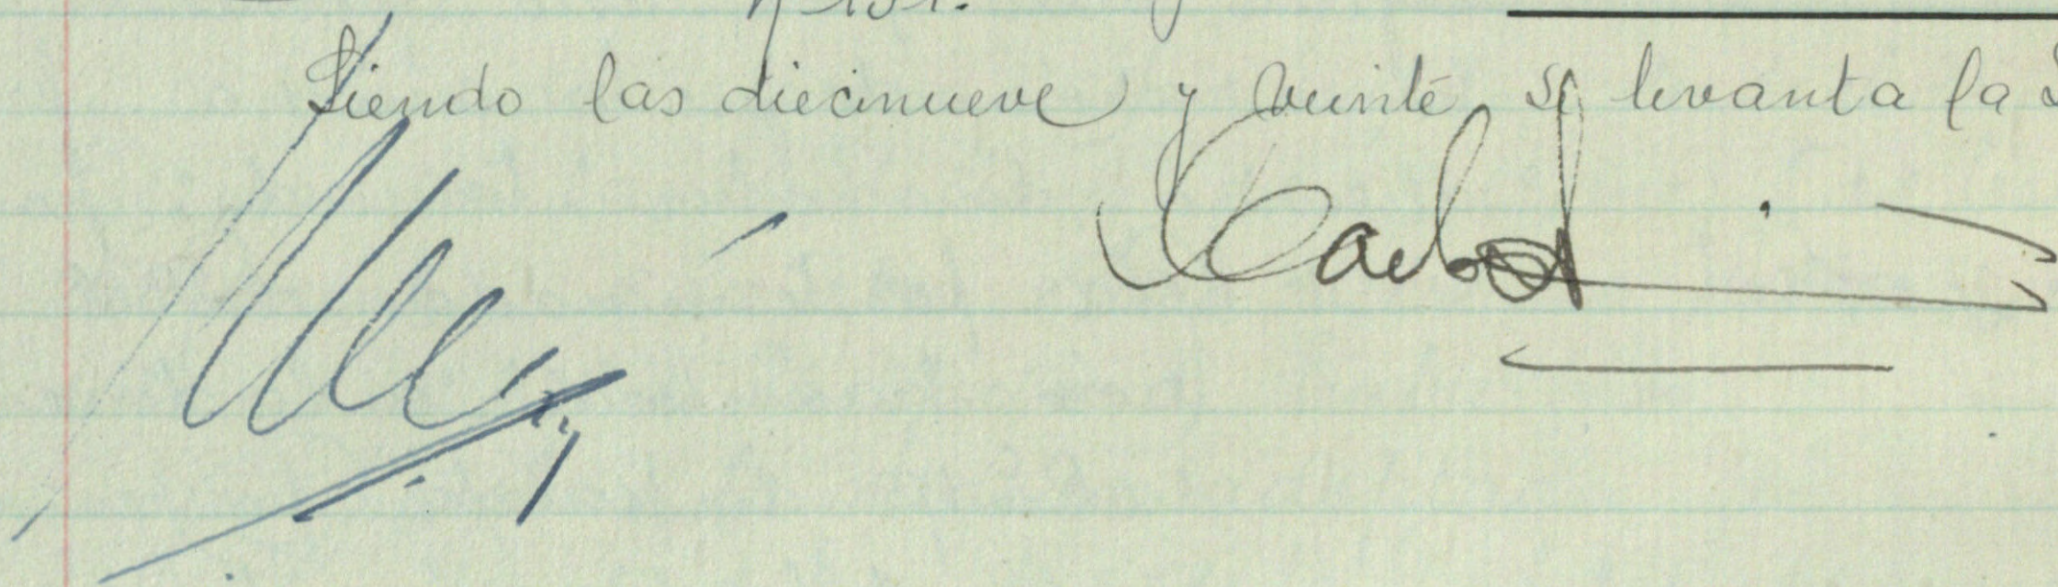 Siendo las diecinueve y veinte se levanta la
Carlos